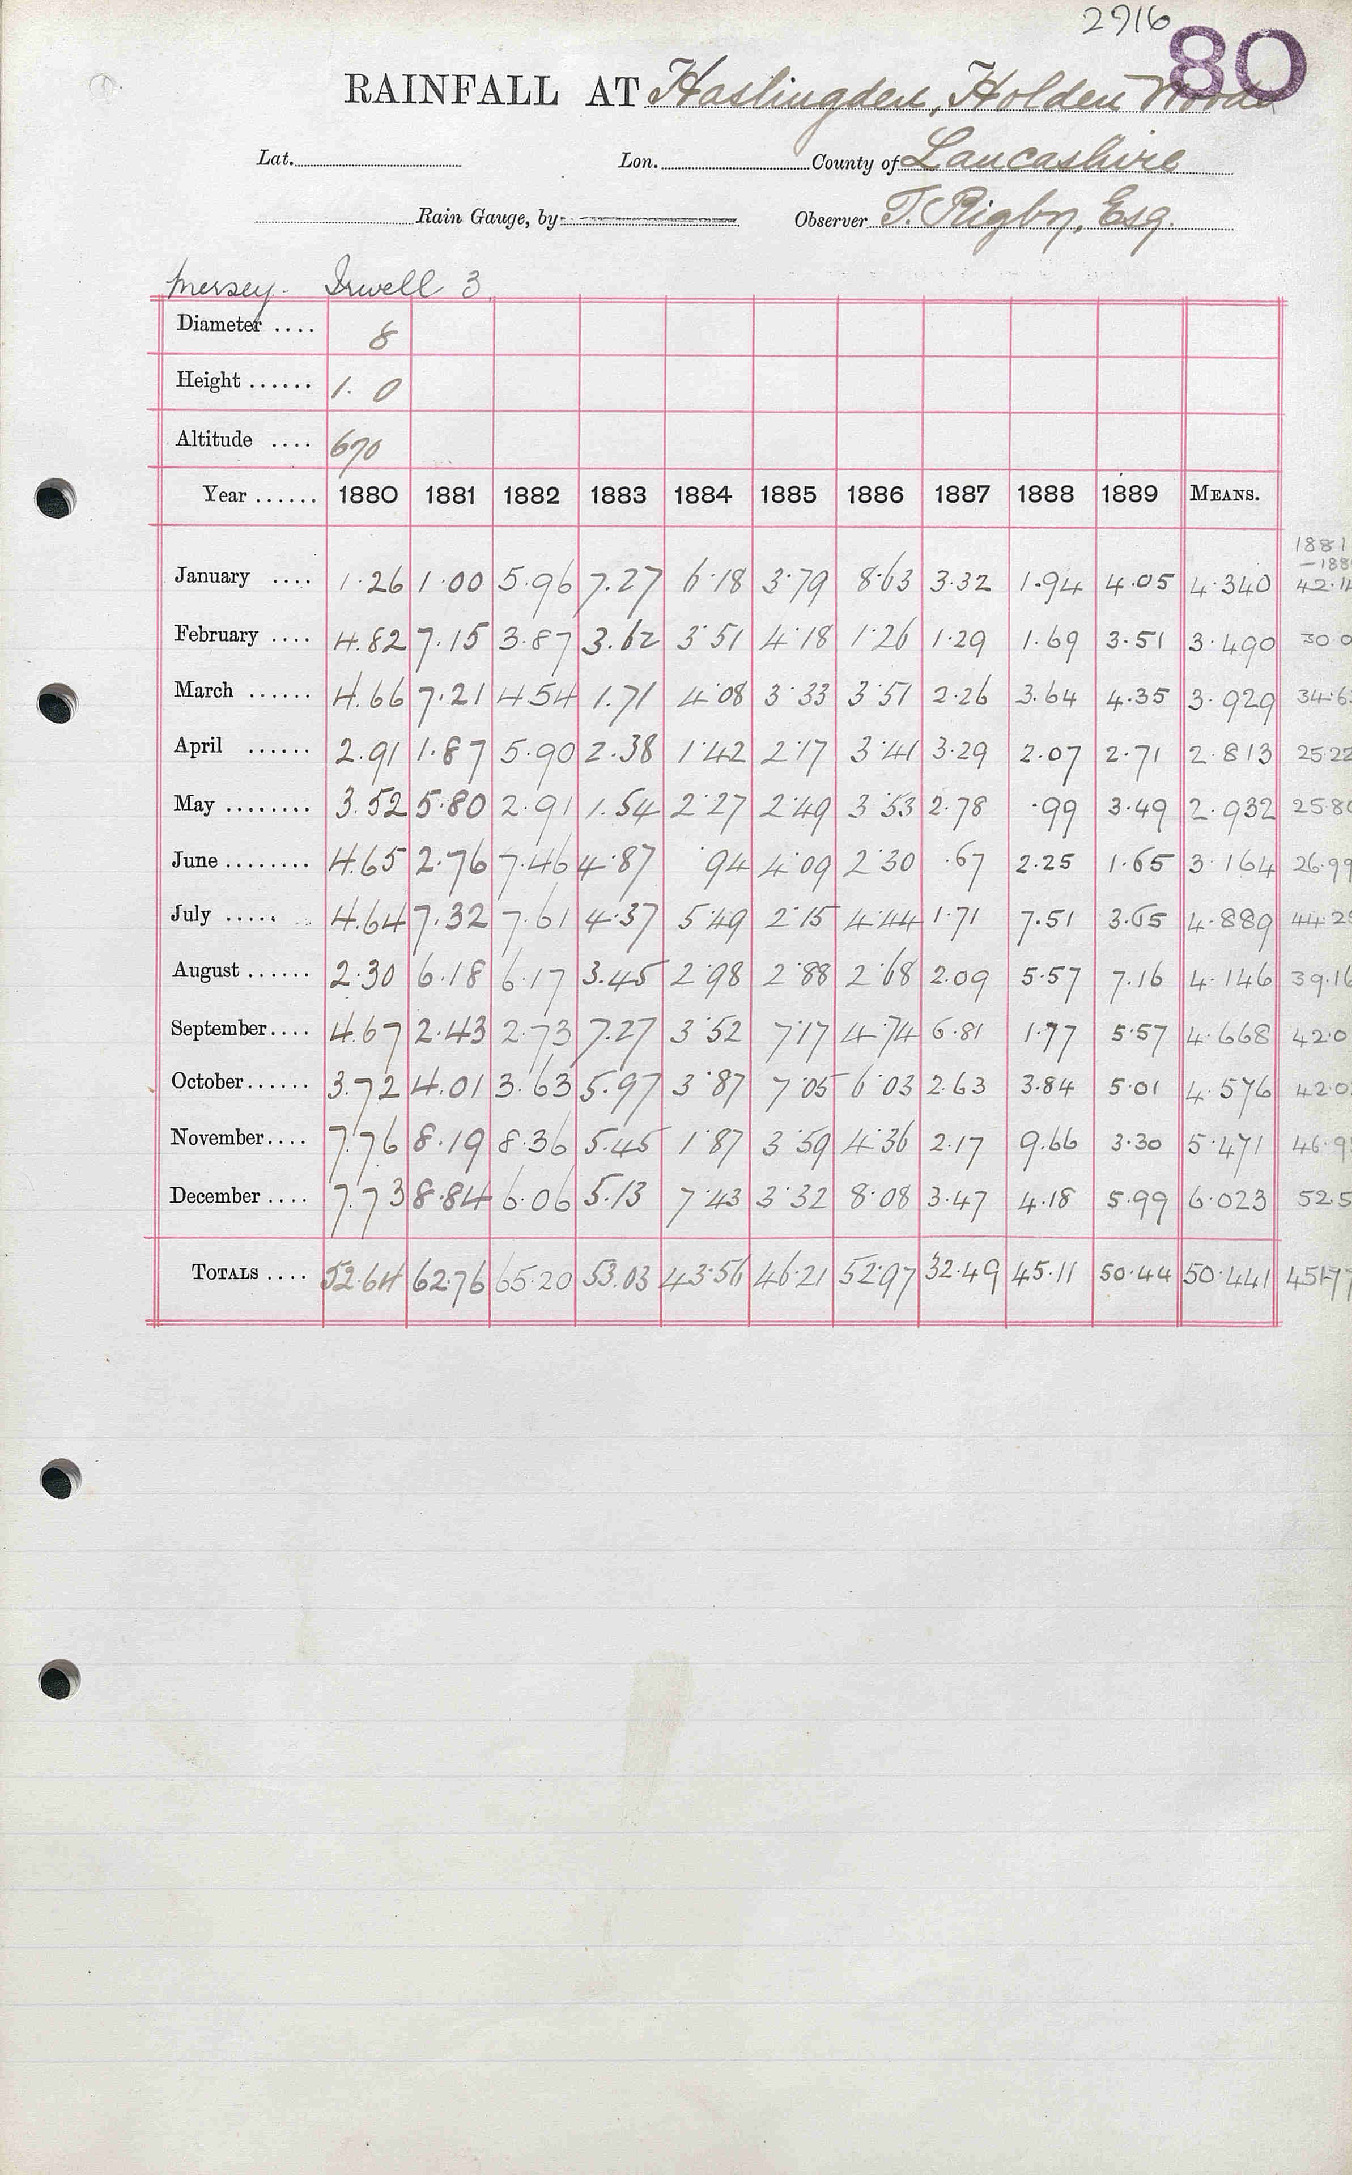 2916
80
RAINFALL AT Haslingden, Holden Wood
Lat. Lon. County of Lancashire
Rain Gauge, by Observer T. Rigby, Esq.
Mersey. Irwell 3
Diameter .... 8
Height ...... 1. 0
Altitude .... 670
Year ...... 1880 1881 1882 1883 1884 1885 1886 1887 1888 1889 MEANS.
1881
January .... 1.26 1.00 5.96 7.27 6.18 3.79 8.63 3.32 1.94 4.05 4.340
February .... 4.82 7.15 3.87 3.62 3.51 4.18 1.26 1.29 1.69 3.51 3.490 30.0
March ...... 4.66 7.21 4.54 1.71 4.08 3.33 3.51 2.26 3.64 4.35 3.929 34.6
April ...... 2.91 1.87 5.90 2.38 1.42 2.17 3.41 3.29 2.07 2.71 2.813 25.22
May ........ 3.52 5.80 2.91 1.54 2.27 2.49 3.53 2.78 .99 3.49 2.932 25.80
June ........ 4.65 2.76 7.46 4.87 .94 4.09 2.30 .67 2.25 1.65 3.164 26.99
July ..... 4.64 7.32 7.61 4.37 5.49 2.15 4.44 1.71 7.51 3.65 4.889 44.25
August ...... 2.30 6.18 6.17 3.45 2.98 2.88 2.68 2.09 5.57 7.16 4.146 39.16
September.... 4.67 2.43 2.73 7.27 3.52 7.17 4.74 6.81 1.77 5.57 4.668 42.0
October...... 3.72 4.01 3.63 5.97 3.87 7.05 6.03 2.63 3.84 5.01 4.576 42.0
November.... 7.76 8.19 8.36 5.45 1.87 3.59 4.36 2.17 9.66 3.30 5.471 46.9
December .... 7.73 8.84 6.06 5.13 7.43 3.32 8.08 3.47 4.18 5.99 6.023 52.5
TOTALS .... 52.64 62.76 65.20 53.03 43.56 46.21 52.97 32.49 45.11 50.44 50.441 451.77